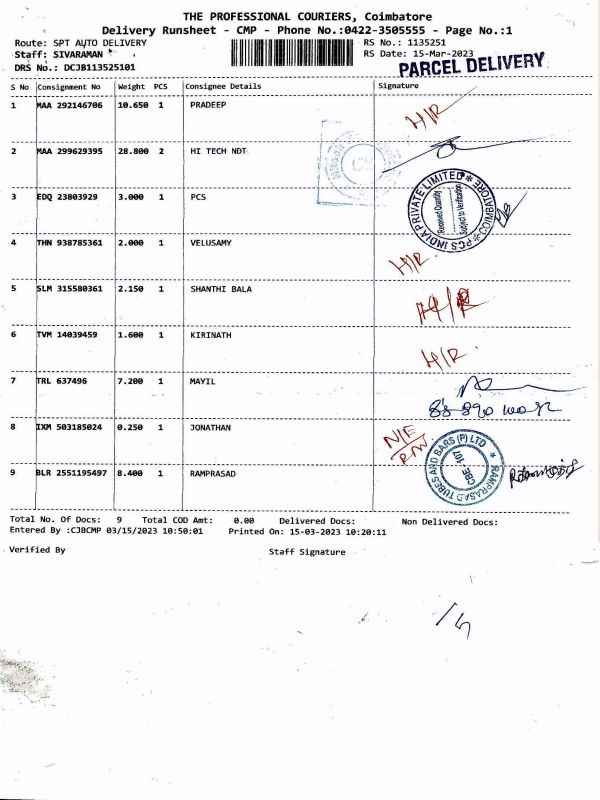 THE PROFESSIONAL COURIERS, Coimbatore
Delivery Runsheet - CMP - Phone No.:0422-3505555 - Page No.:1
Route: SPT AUTO DELIVERY RS No.: 1135251
Staff: SIVARAMAN RS Date: 15-Mar-2023
DRS No.: DCJB113525101 PARCEL DELIVERY
S No Consignment No Weight PCS Consignee Details Signature
1 MAA 292146706 10.650 1 PRADEEP H/R
2 MAA 299629395 28.800 2 HI TECH NDT
3 EDQ 23803929 3.000 1 PCS PCS INDIA PRIVATE LIMITED * COIMBATORE * Received Quantity Subject to Verification
4 THN 938785361 2.000 1 VELUSAMY H/R
5 SLM 315580361 2.150 1 SHANTHI BALA H/R
6 TVM 14039459 1.600 1 KIRINATH H/R
7 TRL 637496 7.200 1 MAYIL
8 IXM 503185024 0.250 1 JONATHAN N/E
9 BLR 2551195497 8.400 1 RAMPRASAD RAMPRASAD TUBES AND BARS (P) LTD * CBE-107
Total No. Of Docs: 9 Total COD Amt: 0.00 Delivered Docs: Non Delivered Docs:
Entered By :CJBCMP 03/15/2023 10:50:01 Printed On: 15-03-2023 10:20:11
Verified By Staff Signature